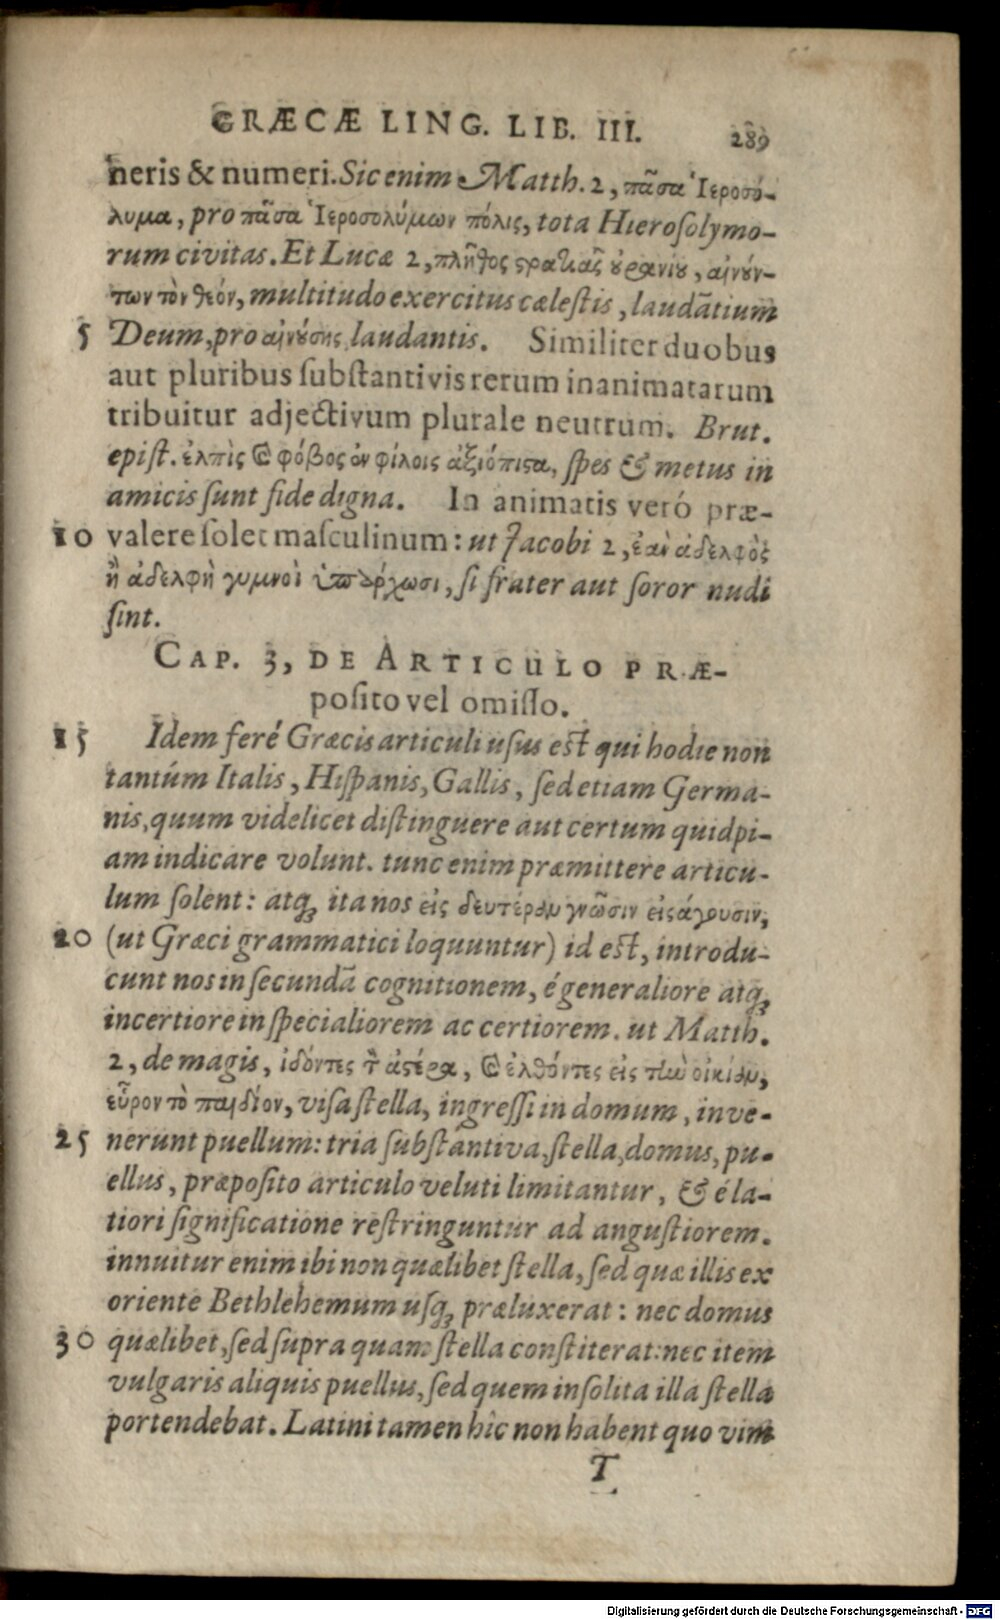 GRÆCÆ LING. LIB. III. 289
neris & numeri. Sic enim Matth. 2, πᾶσα Ἱεροσό-
λυμα, pro πᾶσα Ἱεροσολύμων πόλις, tota Hierosolymo-
rum civitas. Et Lucæ 2, πλῆθος ϛρατιᾶς ȣ̓ρανίȣ, αἰνȣ́ν-
των τὸν θεόν, multitudo exercitus cælestis, laudātium
5 Deum, pro αἰνȣ́σης laudantis. Similiter duobus
aut pluribus substantivis rerum inanimatarum
tribuitur adjectivum plurale neutrum. Brut.
epist. ἐλπὶς ϗ φόβος ἐν φίλοις ἀξιόπιϛα, spes & metus in
amicis sunt fide digna. In animatis veró præ-
10 valere solet masculinum: ut Jacobi 2, ἐὰν ἀδελφὸς
ἢ ἀδελφὴ γυμνοὶ ὑπάρχωσι, si frater aut soror nudi
sint.
CAP. 3, DE ARTICULO PRÆ-
posito vel omisso.
15 Idem feré Græcis articuli usus est qui hodie non
tantúm Italis, Hispanis, Gallis, sed etiam Germa-
nis, quum videlicet distinguere aut certum quidpi-
am indicare volunt. tunc enim præmittere articu-
lum solent: atq; ita nos εἰς δευτέραν γνῶσιν εἰσάγουσιν,
20 (ut Græci grammatici loquuntur) id est, introdu-
cunt nos in secundā cognitionem, é generaliore atq;
incertiore in specialiorem ac certiorem. ut Matth.
2, de magis, ἰδόντες τ̀ ἀϛέρα, ϗ ἐλθόντες εἰς τὴν οἰκίαν,
εὗρον τὸ παιδίον, visa stella, ingressi in domum, inve-
25 nerunt puellum: tria substantiva, stella, domus, pu-
ellus, præposito articulo veluti limitantur, & é la-
tiori significatione restringuntur ad angustiorem.
innuitur enim ibi non quælibet stella, sed quæ illis ex
oriente Bethlehemum usq; præluxerat: nec domus
30 quælibet, sed supra quam stella constiterat: nec item
vulgaris aliquis puellus, sed quem insolita illa stella
portendebat. Latini tamen hîc non habent quo vim
T
Digitalisierung gefördert durch die Deutsche Forschungsgemeinschaft - DFG